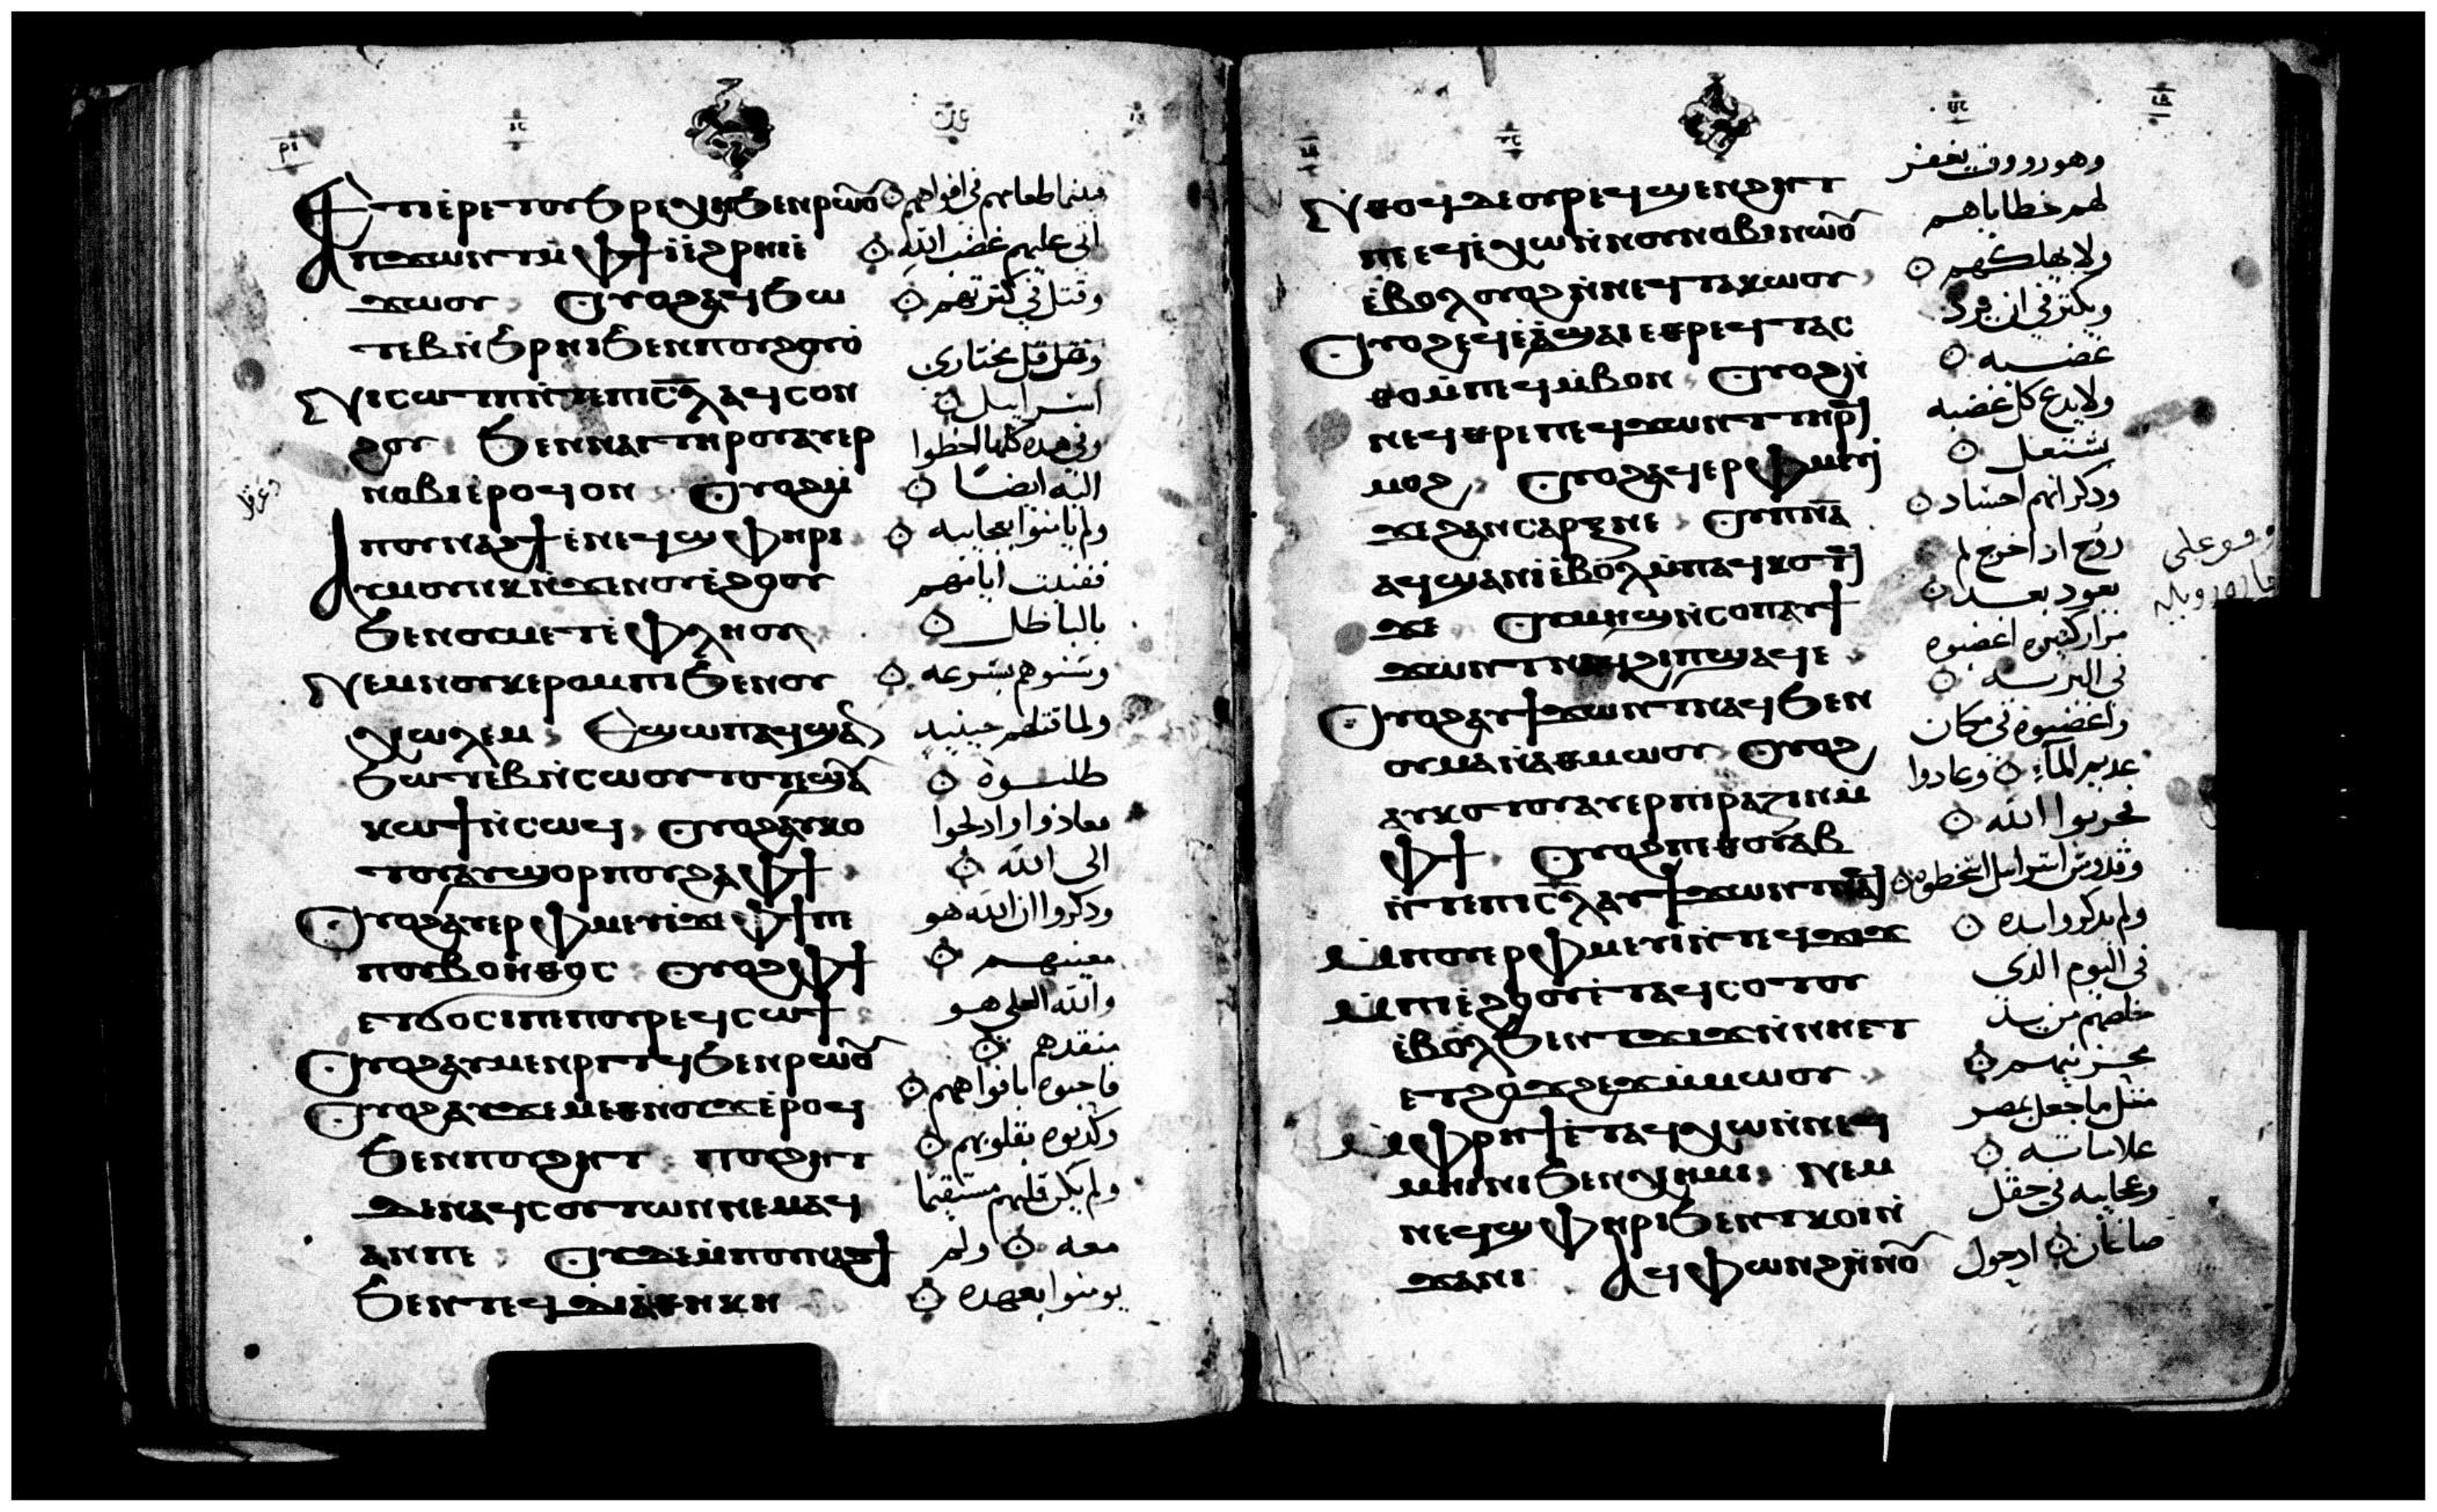 Ⲉⲧⲓⲉⲣⲉⲧⲟⲩϧⲣⲉⲭⲏϧⲉⲛⲣⲱⲟⲩ
Ⲁⲡϫⲱⲛⲧⲙ̀ⲫϯⲓ̀ⲉ̀ϩⲣⲏⲓⲉ̀
ϫⲱⲟⲩ Ⲟⲩⲟϩⲁϥϧⲱ
ⲧⲉⲃⲛ̀ϧⲣⲏⲓϧⲉⲛⲡⲟⲩϩⲟⲩⲟ̀
Ⲛⲓⲥⲱⲧⲡⲛ̀ⲧⲉⲡⲓⲥ̅ⲗ̅ⲁϥⲥⲟⲛ
ϩⲟⲩ ϧⲉⲛⲛⲁⲓⲧⲏⲣⲟⲩⲁⲩⲉⲣ
ⲛⲟⲃⲓⲉ̀ⲣⲟϥⲟⲛ Ⲟⲩⲟϩⲙ̀
ⲡⲟⲩⲛⲁϩϯⲉ̀ⲛⲉϥϣⲫⲏⲣⲓ
Ⲁⲩⲙⲟⲩⲛⲕⲛ̀ϫⲉⲛⲟⲩⲉ̀ϩⲟⲟⲩ
ϧⲉⲛⲟⲩⲙⲉⲧⲉ̀ⲫⲗⲏⲟⲩ
Ⲛⲉⲙⲛⲟⲩⲕⲉⲣⲟⲙⲡⲓϧⲉⲛⲟⲩ
ⲭⲱⲗⲉⲙ Ⲉϣⲱⲡⲁϥϣⲁⲛ
ϧⲱⲧⲉⲃⲛ̀ⲥⲱⲟⲩⲧⲟⲧⲉϣⲁⲩ
ⲕⲱϯⲛ̀ⲥⲱϥ Ⲟⲩⲟϩⲁⲩⲕⲟ
ⲧⲟⲩⲁⲩϣⲟⲣⲡⲟⲩϩⲁⲫϯ
Ⲟⲩⲟϩⲁⲩⲉⲣⲫⲙⲉⲩⲓ̀ϫⲉⲫϯⲡⲉ
ⲡⲟⲩⲃⲟⲏ̀ⲑⲟⲥ Ⲟⲩⲟϩⲫϯ
ⲉⲧϭⲟⲥⲓⲡⲉⲡⲟⲩⲣⲉϥⲥⲱϯ
Ⲟⲩⲟϩⲁⲩⲙⲉⲛⲣⲓⲧϥϧⲉⲛⲣⲱⲟⲩ
Ⲟⲩⲟϩⲁⲩϫⲉⲙⲉⲑⲛⲟⲩϫⲉ̀ⲣⲟϥ
ϧⲉⲛⲡⲟⲩϩⲏⲧ ⲡⲟⲩϩⲏⲧ
ⲇⲉⲛⲁϥⲥⲟⲩⲧⲱⲛⲛⲉⲙⲁϥ
ⲁⲛⲡⲉ Ⲟⲩⲇⲉⲙ̀ⲡⲟⲩⲛⲁϩϯ
ϧⲉⲛⲧⲉϥⲇⲓⲁⲑⲏⲕⲏ
فبينما طعامهم في افواههم
اتى عليهم غضب الله
وقتل في كثرتهم
وقتل مختاري
اسراييل
وفي هذه كلها اخطوا
اليه ايضا
ولم يامنوا بعجايبه
ففنيت ايامهم
بالباطل
وسنوهم بسرعه
ولما قتلهم حينيد
طلبوه
فعادوا وادلجوا
الى الله
ودكروا ان الله هو
معينهم
والله العلي هو
منقدهم
فاحبوه بافواههم
وكدبوه بقلوبهم
ولم يكن قلبهم مستقيما
معه ولم
يومنوا بعهده
Ⲛⲑⲟϥⲇⲉⲟⲩⲣⲉϥϣⲉⲛϩⲏⲧ
ⲡⲉϥⲉ̀ⲭⲱⲛ̀ⲛⲟⲩⲛⲟⲃⲓⲛⲱⲟⲩ
ⲉ̀ⲃⲟⲗⲟⲩⲟϩⲛ̀ⲛⲉϥⲧⲁⲕⲱⲟⲩ
Ⲟⲩⲟϩⲉϥⲉ̀ⲁ̀ϣⲁⲓⲉⲑⲣⲉϥⲧⲁⲥ
ⲑⲟⲙ̀ⲡⲉϥⲙ̀ⲃⲟⲛ Ⲟⲩⲟϩⲛ̀
ⲛⲉϥⲑⲣⲉⲡⲉϥϫⲱⲛⲧⲧⲏⲣϥ
ⲙⲟϩ Ⲟⲩⲟϩⲁϥⲉⲣⲫⲙⲉⲩⲓ
ϫⲉϩⲁⲛⲥⲁⲣⲝⲛⲉ Ⲟⲩⲡ̅ⲛ̅ⲁ̅
ⲁϥϣⲁⲛⲓ̀ⲉ̀ⲃⲟⲗⲙ̀ⲡⲁϥⲕⲟⲧϥ
ϫⲉ Ⲟⲩⲙⲏϣⲛ̀ⲥⲟⲡⲁⲩϯ
ϫⲱⲛⲧⲛⲁϥϩⲓⲡϣⲁϥⲉ
Ⲟⲩⲟϩⲁⲩϯϫⲱⲛⲧⲛⲁϥϧⲉⲛ
ⲟⲩⲙⲁⲛ̀ⲁⲑⲙⲱⲟⲩ Ⲟⲩⲟϩ
ⲁⲩⲕⲟⲧⲟⲩⲁⲩⲉⲣⲡⲓⲣⲁⲍⲓⲛⲙ̀
ⲫϯ Ⲟⲩⲟϩⲡⲉⲑⲟⲩⲁⲃ
ⲛ̀ⲧⲉⲡⲓⲥ̅ⲗ̅ⲁⲩϯϫⲱⲛⲧⲛⲁϥ
Ⲙ̀ⲡⲟⲩⲉⲣⲫⲙⲉⲩⲓ̀ⲛ̀ⲧⲉϥϫⲓϫ
Ⲙ̀ⲡⲓⲉ̀ϩⲟⲟⲩⲉ̀ⲧⲁϥⲥⲟⲧⲟⲩ
ⲉ̀ⲃⲟⲗϧⲉⲛⲧϫⲓϫⲛ̀ⲛⲏⲉⲧ
ⲉⲧϩⲟϫϩⲉϫⲙ̀ⲙⲱⲟⲩ
Ⲙ̀ⲫⲣⲏϯⲉ̀ⲧⲁϥⲭⲱⲛ̀ⲛⲉϥ
ⲙⲏⲓⲛⲓϧⲉⲛⲭⲏⲙⲓ Ⲛⲉⲙ
ⲛⲉϥϣⲫⲏⲣⲓϧⲉⲛⲧⲕⲟⲓⲛ̀
ϫⲁⲛⲓ Ⲁϥⲫⲱⲛϩⲛ̀ⲛⲟⲩ
وهو رووف يغفر
لهم خطاياهم
ولا يهلكهم
ويكثر في ان يرد
غضبه
ولا يدع كل غضبه
يشتعل
ودكر انهم اجساد
روح ادا خرج لم
يعود بعد
مرار كثيره اغضبوه
في البريه
واغضبوه في مكان
عديم الماء وعادوا
يجربوا الله
وقدوس اسراييل اسخطوه
ولم يدكروا يده
في اليوم الدي
خلصهم من يد
محزنيهم
مثل ما جعل بمصر
علاماته
وعجايبه في حقل
صاعان ادحول